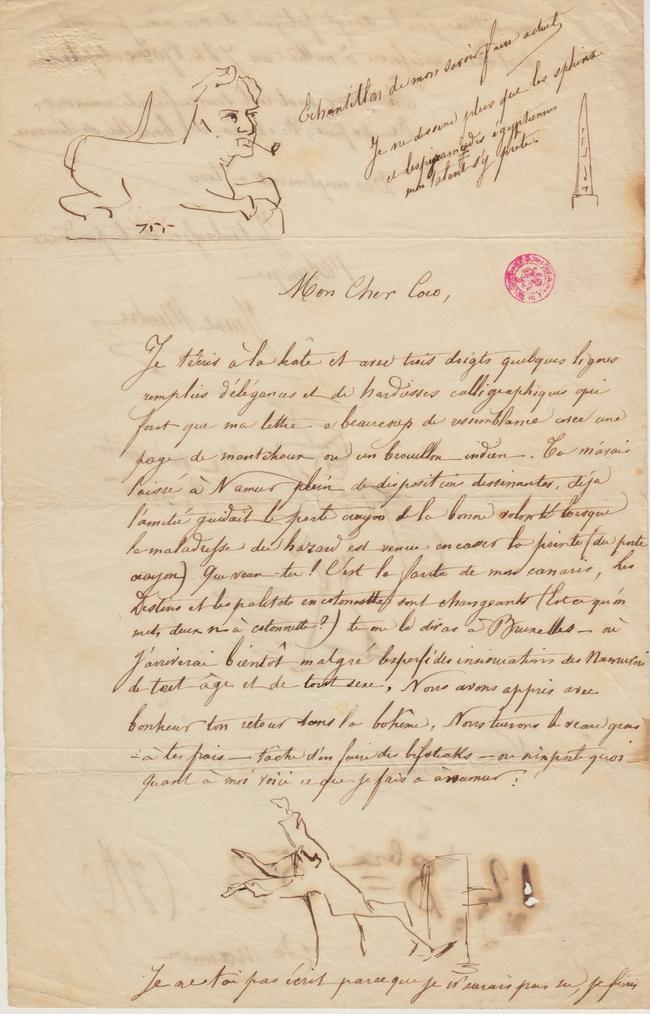 Echantillon de mon savoir-faire actuel
Je ne dessine plus que les sphinx
et les pyramides égyptiennes
mon talent s'y prête.
Mon Cher Coco,
Je t'écris à la hâte et avec trois doigts quelques lignes
remplies d'élégances et de hardiesses calligraphiques qui
font que ma lettre a beaucoup de ressemblance avec une
page de mantchoux ou un brouillon indien. Tu m'avais
laissé à Namur plein de disposition dessinantes, déja
l'amitié guidait le porte crayon de la bonne volonté lorsque
la maladresse du hazard est venue en casser la pointe (du porte
crayon). Que veux-tu! C'est la faute de mon canaris, les
Destins et les paletots en cotonnette sont changeants (Est ce qu'on
mets deux n à cotonnette?) tu me le diras à Bruxelles - où
J'arriverai bientôt malgré les perfides insinuations des Namurois
de tout âge et de tout sexe. Nous avons appris avec
bonheur ton retour dans la bohême. Nous tuerons le veau gras
- à tes frais - tâche d'en faire de bifsteaks - ou n'importe quoi
Quant à moi voici ce que je fais à namur:
Je ne t'ai pas écrit parce que je